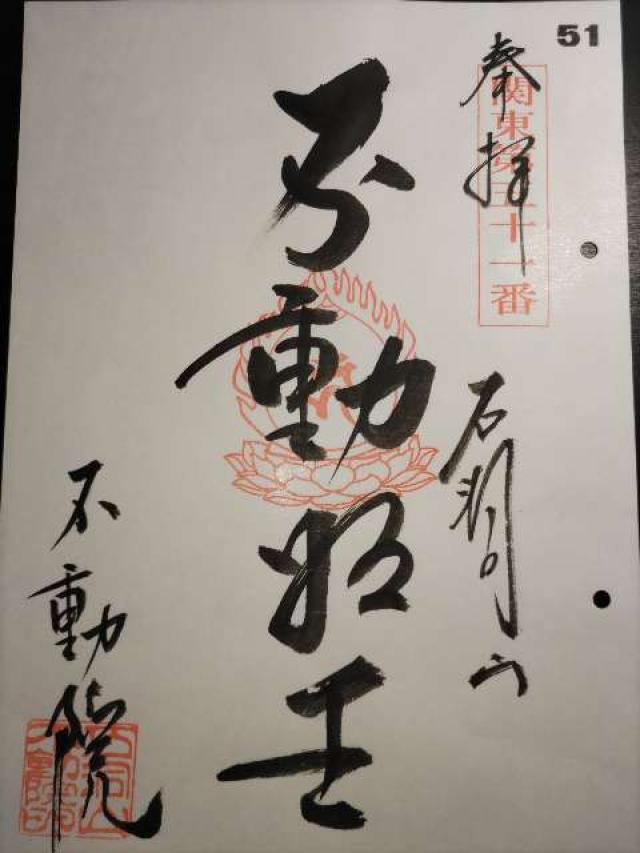 51
奉拝
関東第五十一番
石洞山
不動明王
不動院